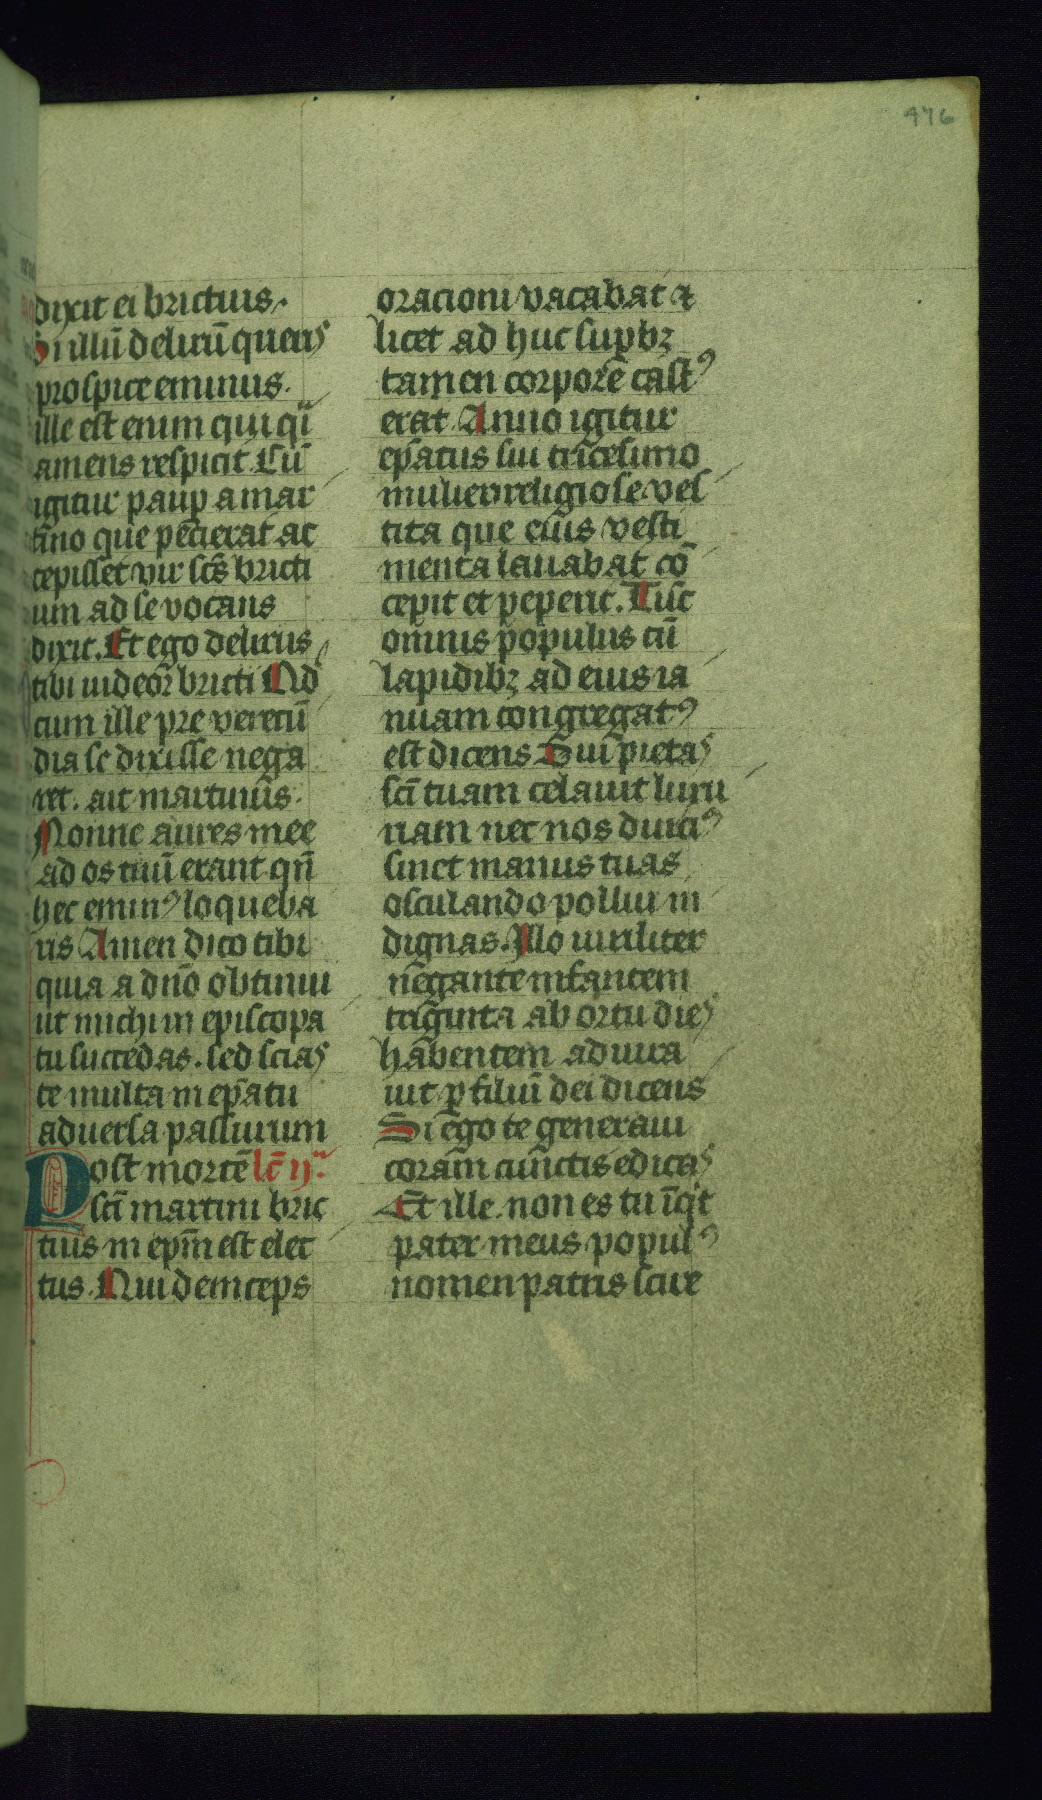 476
dixit ei brictius.
Si illū delirū queris
prospice eminus.
ille est enim qui qͥ
amens respicit. Cū
igitur paup a mar
tino que pecierat ac
cepisset vir scs̄ bricti
um ad se vocans
dixit. Et ego delirus
tibi uideor bricti Qd
cum ille pre verecū
dia se dixisse nega
ret. ait martinus.
Nonne aures mee
ad os tuū erant qn̄
hec eminꝰ loqueba
ris Amen dico tibi
quia a dn̄o obtinui
ut michi in episcopa
tu succedas. sed scias
te multa in ep̄atu
aduersa passurum
Post mortē lc̄ ijᵃ
scī martini bric
tius in epm̄ est elec
tus. Qui deinceps
oracioni vacabat ⁊
licet ad huc supbꝫ
tamen corpore castꝰ
erat. Anno igitur
ep̄atus sui tricesimo
mulier religiose ves
tita que eius vesti
menta lauabat cō
cepit et peperit. Tūc
omnis populus cū
lapidibꝫ ad eius ia
nuam congregatꝰ
est dicens Sui pietas
scī tuam celauit luxu
riam nec nos diuciꝰ
sinet manus tuas
osculando pollui in
dignas. Illo uiriliter
negante infantem
triginta ab ortu dies
habentem adiura
uit p filiū dei dicens
Si ego te generaui
coram cunctis edicas
Et ille. non es tu īqͥt
pater meus. populꝰ
nomen patris scire